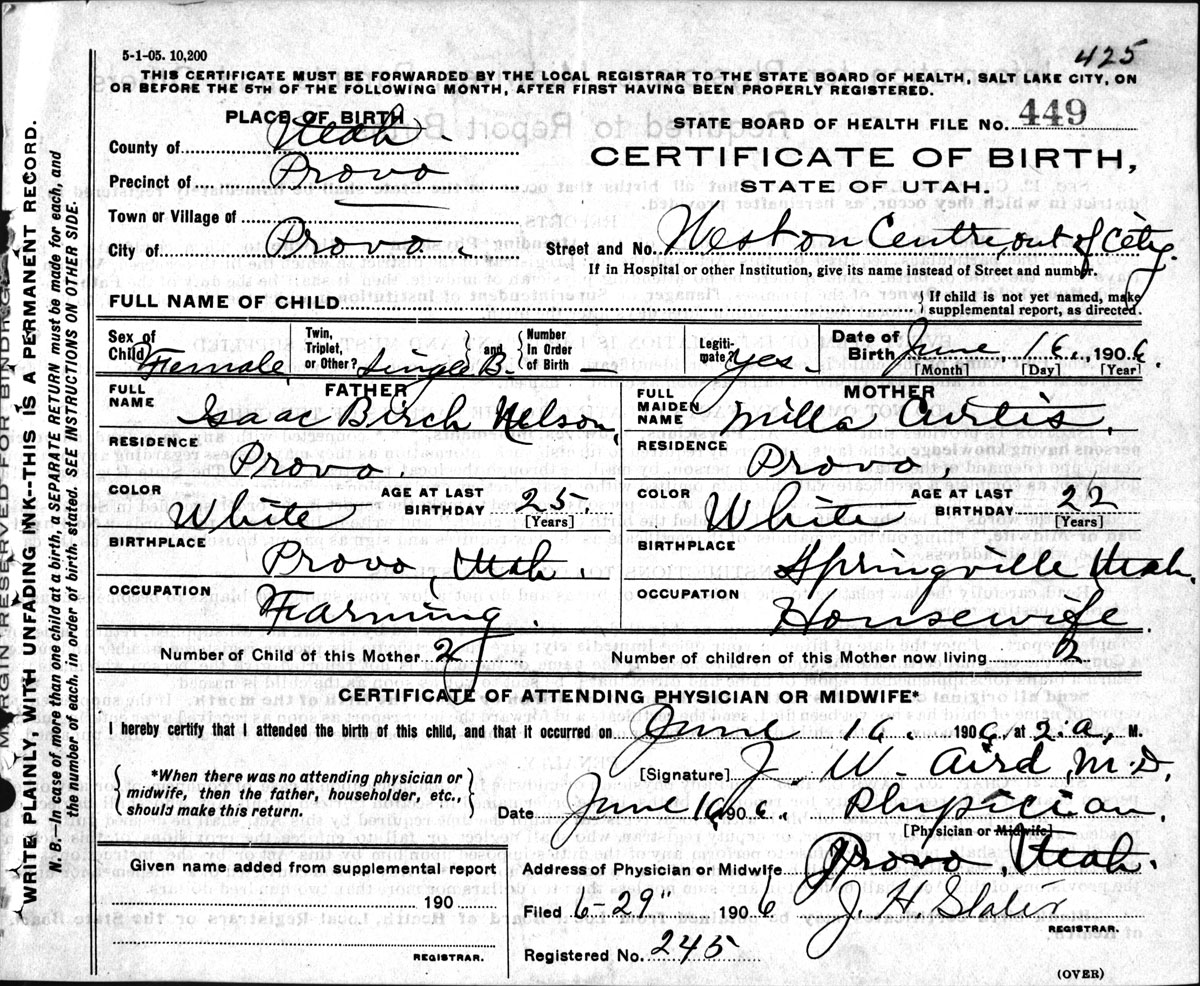 5-1-05. 10,200
425
THIS CERTIFICATE MUST BE FORWARDED BY THE LOCAL REGISTRAR TO THE STATE BOARD OF HEALTH, SALT LAKE CITY, ON
OR BEFORE THE 5TH OF THE FOLLOWING MONTH, AFTER FIRST HAVING BEEN PROPERLY REGISTERED.
PLACE OF BIRTH
County of Utah
Precinct of Provo
Town or Village of
City of Provo.
STATE BOARD OF HEALTH FILE No. 449
CERTIFICATE OF BIRTH,
STATE OF UTAH.
Street and No. Centre, out of City.
If in Hospital or other Institution, give its name instead of Street and number.
FULL NAME OF CHILD
If child is not yet named, make
supplemental report, as directed.
Sex of Child Female
Twin, Triplet, or Other? Single B. and Number In Order of Birth —
Legitimate? Yes.
Date of Birth June, 16., 1906
[Month] [Day] [Year]
FATHER
FULL NAME Isaac Birch Nelson,
RESIDENCE Provo.
COLOR White AGE AT LAST BIRTHDAY 25.
[Years]
BIRTHPLACE Provo, Utah.
OCCUPATION Farming.
MOTHER
FULL MAIDEN NAME Milla Curtis.
RESIDENCE Provo,
COLOR White AGE AT LAST BIRTHDAY 22
[Years]
BIRTHPLACE Springville Utah.
OCCUPATION Housewife.
Number of Child of this Mother 2
Number of children of this Mother now living 2
CERTIFICATE OF ATTENDING PHYSICIAN OR MIDWIFE*
I hereby certify that I attended the birth of this child, and that it occurred on June 16. 1906, at 2.a. M.
*When there was no attending physician or
midwife, then the father, householder, etc.,
should make this return.
[Signature] J. W. Aird, M.D.
Date June 16 1906. Physician.
[Physician or Midwife]
Address of Physician or Midwife Provo, Utah.
Given name added from supplemental report
190
REGISTRAR.
Filed 6-29" 1906 J. H. Slater
REGISTRAR.
Registered No. 245
(OVER)
MARGIN RESERVED FOR BINDING
WRITE PLAINLY, WITH UNFADING INK--THIS IS A PERMANENT RECORD.
N. B.—In case of more than one child at a birth, a SEPARATE RETURN must be made for each, and
the number of each, in order of birth, stated. SEE INSTRUCTIONS ON OTHER SIDE.